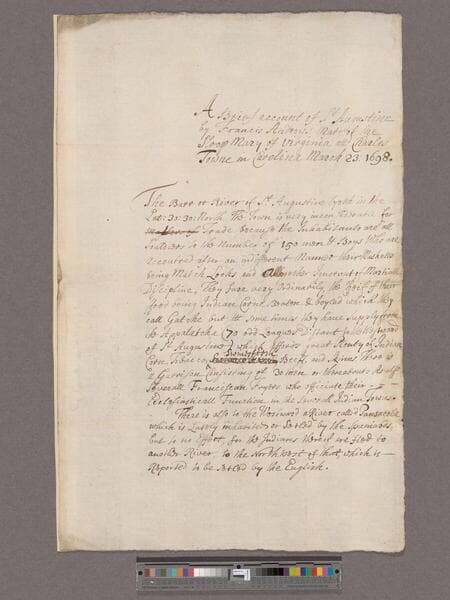 A Brief account of St Augustine
by Francis Mate of the
Sloop Mary of Virginia at Charles
Towne in Carolina March 23 1698.
The Barr or River of St Augustine lyeth in the
Lat: 30:30 North The Town is very for
of Trade because the Inhabitants are all
to the Number of 150 men & Boys Who are
accoutred after an indifferent Manner their Musketts
being Match Locks and in out of Martiall
Discipline. They fare very Ordinarily the of their
food being Indian Corne Beaten & boyled which they
call but at some times they have Supply from
the Appalatcke (70 odd Leagues Distant to the Westward
of St Augustine) which affords great Plenty of Indian
Corn Beefs and there is
a Garrison Consisting of 30 men or thereabouts
Severall Franciscan Fryers who officiate their
Ecclesiasticall Function in the Severall Indian Towns.
There is also to the Westward a River called
which is Lately inhabited or Setled by the Spaniards,
but to no Effect, for the Indians thereof are fled to
another River to the North West of that, which is
Reported to be Setled by the English.